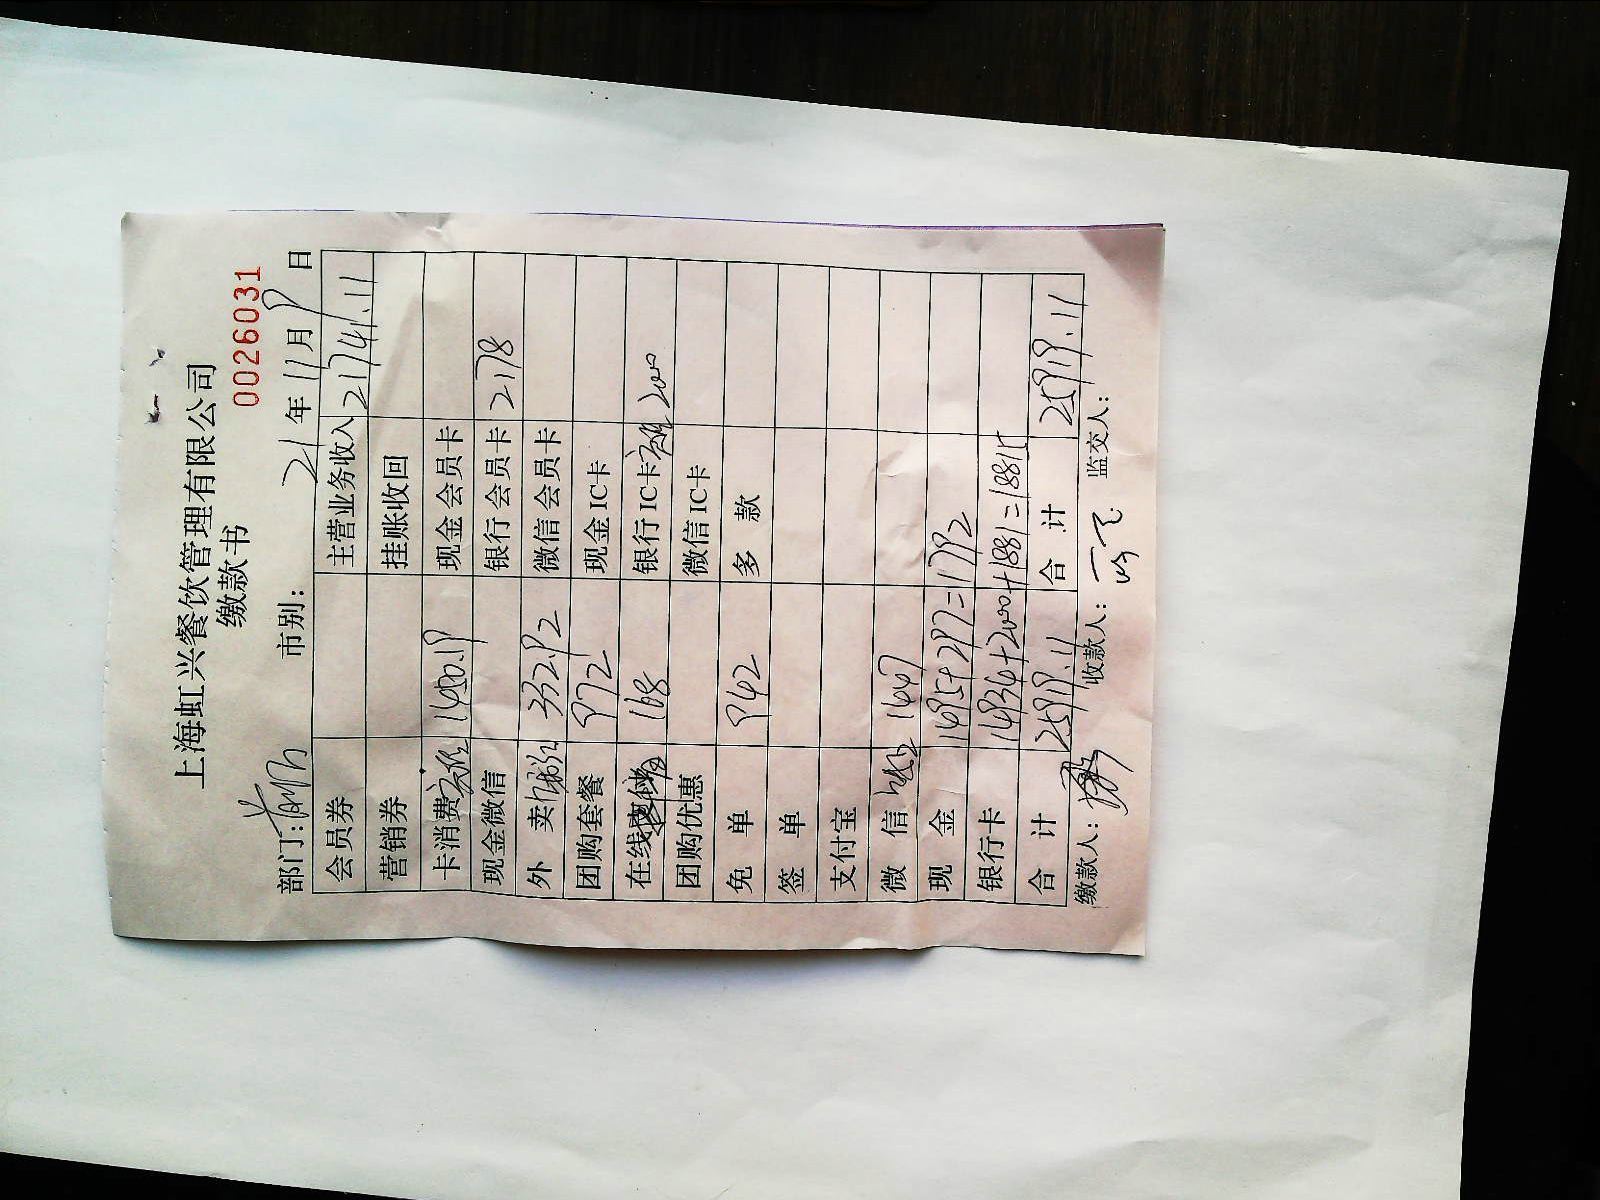 上海虹兴餐饮管理有限公司
缴款书
0026031
部门: 市别: 21年11月9日
会员券 主营业务收入 21741.11
营销券 挂账收回
卡消费 1450.19 现金会员卡
现金微信 银行会员卡 2178
外卖 332.92 微信会员卡
团购套餐 972 现金IC卡
在线 168 银行IC卡 2000
团购优惠 微信IC卡
免单 942 多款
签单
支付宝
微信 1447
现金 1495+297=1792
银行卡 14934+2000+1881=18815
合计 25919.11 合计 25919.11
缴款人: 收款人: 监交人: